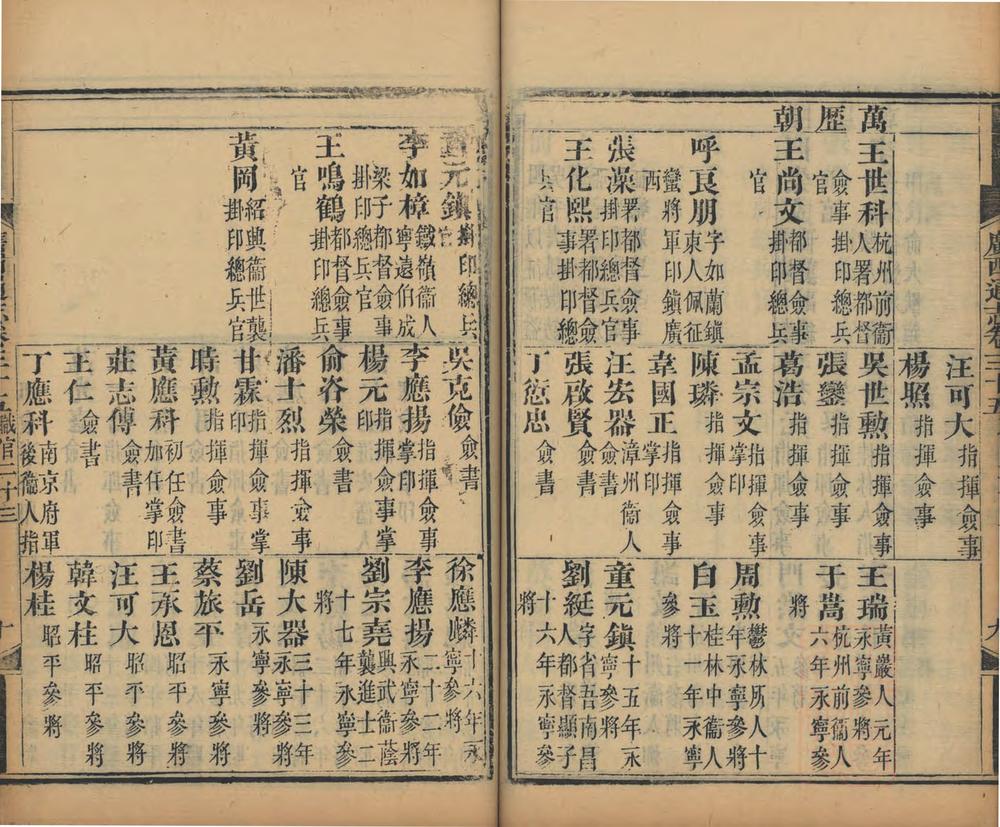 廣西通志卷三十五
九
萬歷朝
王世科杭州前衞人署都督僉事掛印總兵官
王尚文都督僉事掛印總兵官
呼良朋字如蘭鎮東人佩征蠻將軍鎮廣西
張澡署都督僉事掛印總兵官
王化熙署都督僉事掛印總兵官
汪可大指揮僉事
楊照指揮僉事
吳世勲指揮僉事
張鑾指揮僉事
葛浩指揮僉事
孟宗文指揮僉事掌印
陳璘指揮僉事
韋國正指揮僉事掌印
汪宏器漳州衞人僉書
張啟賢僉書
丁愆忠僉書
王瑞黃巖人元年永寧參將
于嵩杭州前衞人六年永寧參將
周勲鬱林所人十年永寧參將
白玉桂林中衞人十一年永寧參將
童元鎮十五年永寧參將
劉綎字省吾南昌人都督顯子十六年永寧參將
童元鎮掛印總兵官
李如樟鐵嶺衞人寧遠伯成梁子都督僉事掛印總兵官
王鳴鶴都督僉事掛印總兵官
黃岡紹興衞世襲掛印總兵官
吳克儉僉書
李應揚指揮僉事掌印
楊元指揮僉事掌印
俞咨榮僉書
潘士烈指揮僉事
甘霖指揮僉事掌印
時勲指揮僉事
黃應科初任僉書加仟掌印
莊志傳僉書
王仁僉書
丁應科南京府軍後衞人指
徐應麟十六年永寧參將
李應揚二十二年永寧參將
劉宗堯興武衞蔭襲進士二十七年永寧參將
陳大器三十三年永寧參將
劉岳永寧參將
蔡旅平永寧參將
王承恩昭平參將
汪可大昭平參將
韓文桂昭平參將
楊桂昭平參將
職官二十三
十